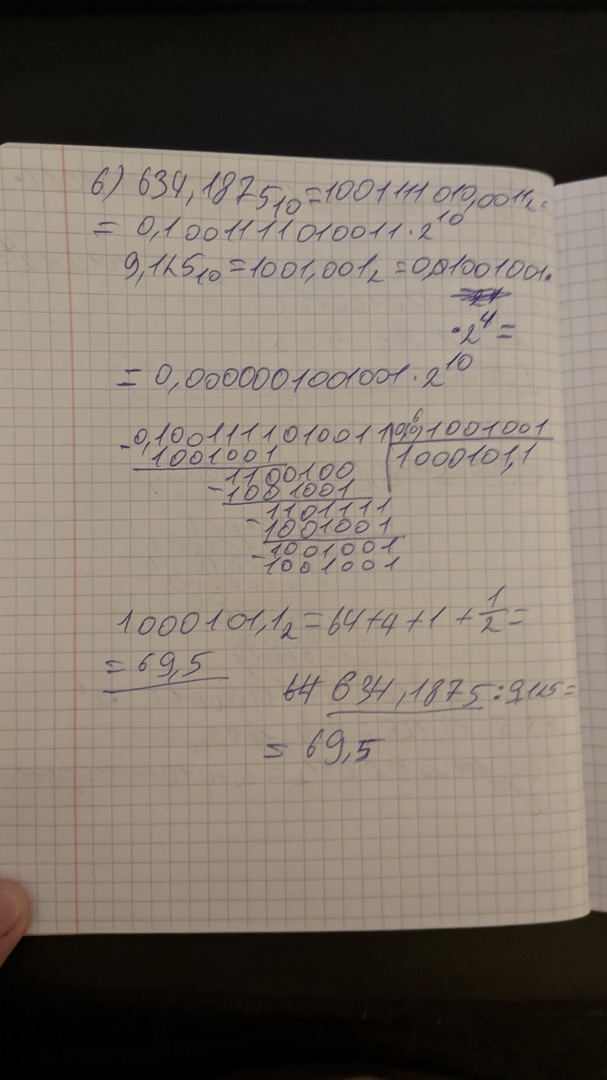 6) 634,1875₁₀=1001111010,0011₂=
= 0,10011110100011·2¹⁰
9,125₁₀=1001,001₂=0,01001001·
·2⁴=
= 0,0000001001001·2¹⁰
-0,10011110100011|0,0⁶1001001
1001001 |1000101,1
1100100
-1001001
1101111
-1001001
-1001001
1001001
1000101,1₂=64+4+1+1/2=
=69,5
634,1875:9,125=
= 69,5